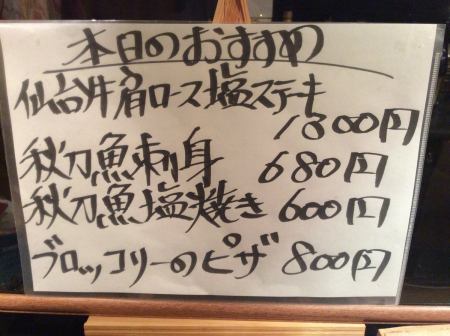 本日のおすすめ
仙台牛肩ロース塩ステーキ
1300円
秋刀魚刺身 680円
秋刀魚塩焼き 600円
ブロッコリーのピザ 800円